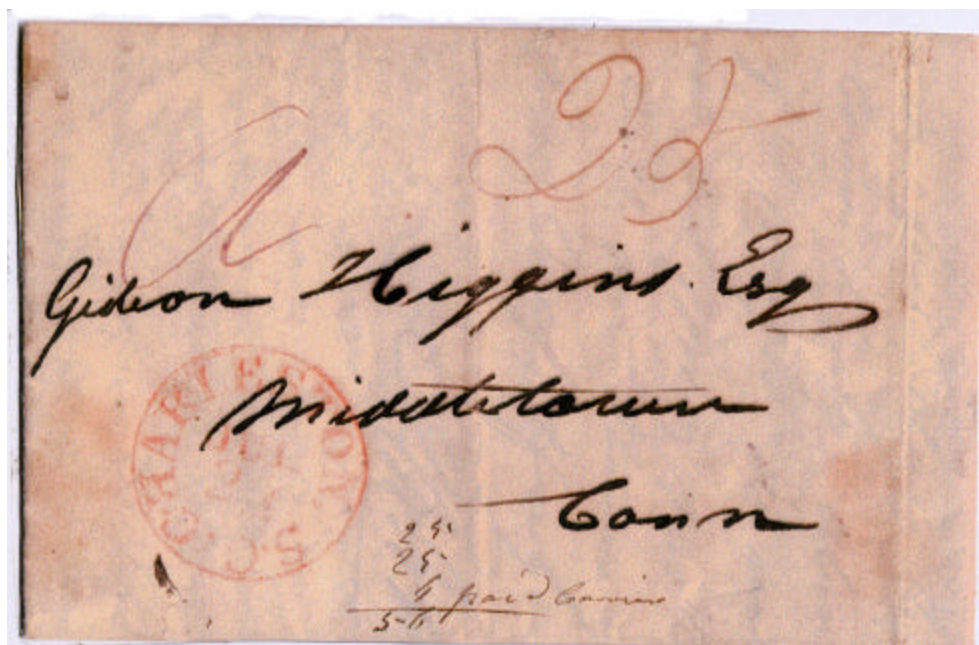 25
Gideon Higgins. Esq
Middletown
Conn
CHARLESTON S.C.
25
25
6 paid Carrier
56